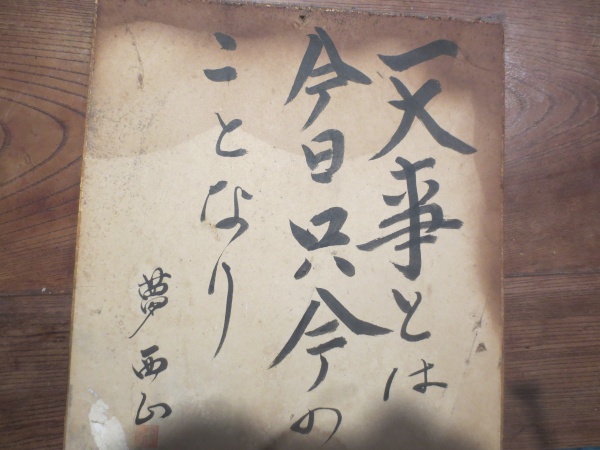 一大事とは
今日只今の
ことなり
夢西山